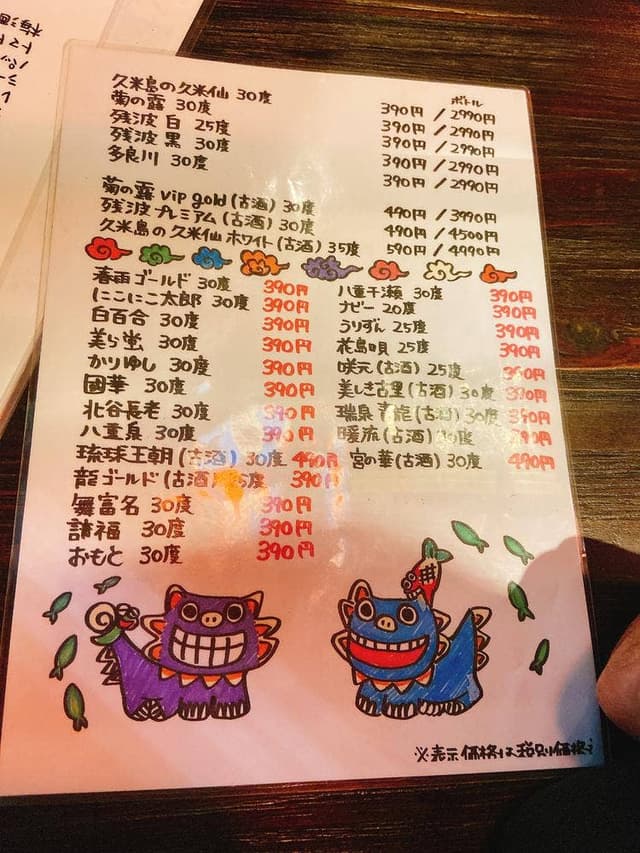 梅酒
トマト
ボトル
久米島の久米仙 30度 390円 / 2990円
菊の露 30度 390円 / 2990円
残波 白 25度 390円 / 2990円
残波 黒 30度 390円 / 2990円
多良川 30度 390円 / 2990円
菊の露 vip gold (古酒) 30度 490円 / 3990円
残波プレミアム (古酒) 30度 490円 / 4500円
久米島の久米仙 ホワイト (古酒) 35度 590円 / 4990円
春雨ゴールド 30度 390円
にこにこ太郎 30度 390円
白百合 30度 390円
美ら蛍 30度 390円
かりゆし 30度 390円
國華 30度 390円
北谷長老 30度 390円
八重泉 30度 390円
琉球王朝 (古酒) 30度 490円
龍ゴールド (古酒) 5度 390円
舞富名 30度 390円
請福 30度 390円
おもと 30度 390円
八重干瀬 30度 390円
ナビー 20度 390円
うりずん 25度 390円
花島唄 25度 390円
咲元 (古酒) 25度 390円
美しき古里 (古酒) 30度 390円
瑞泉 青龍 (古酒) 30度 390円
暖流 (古酒) 30度 390円
宮の華 (古酒) 30度 490円
※表示価格は税別価格